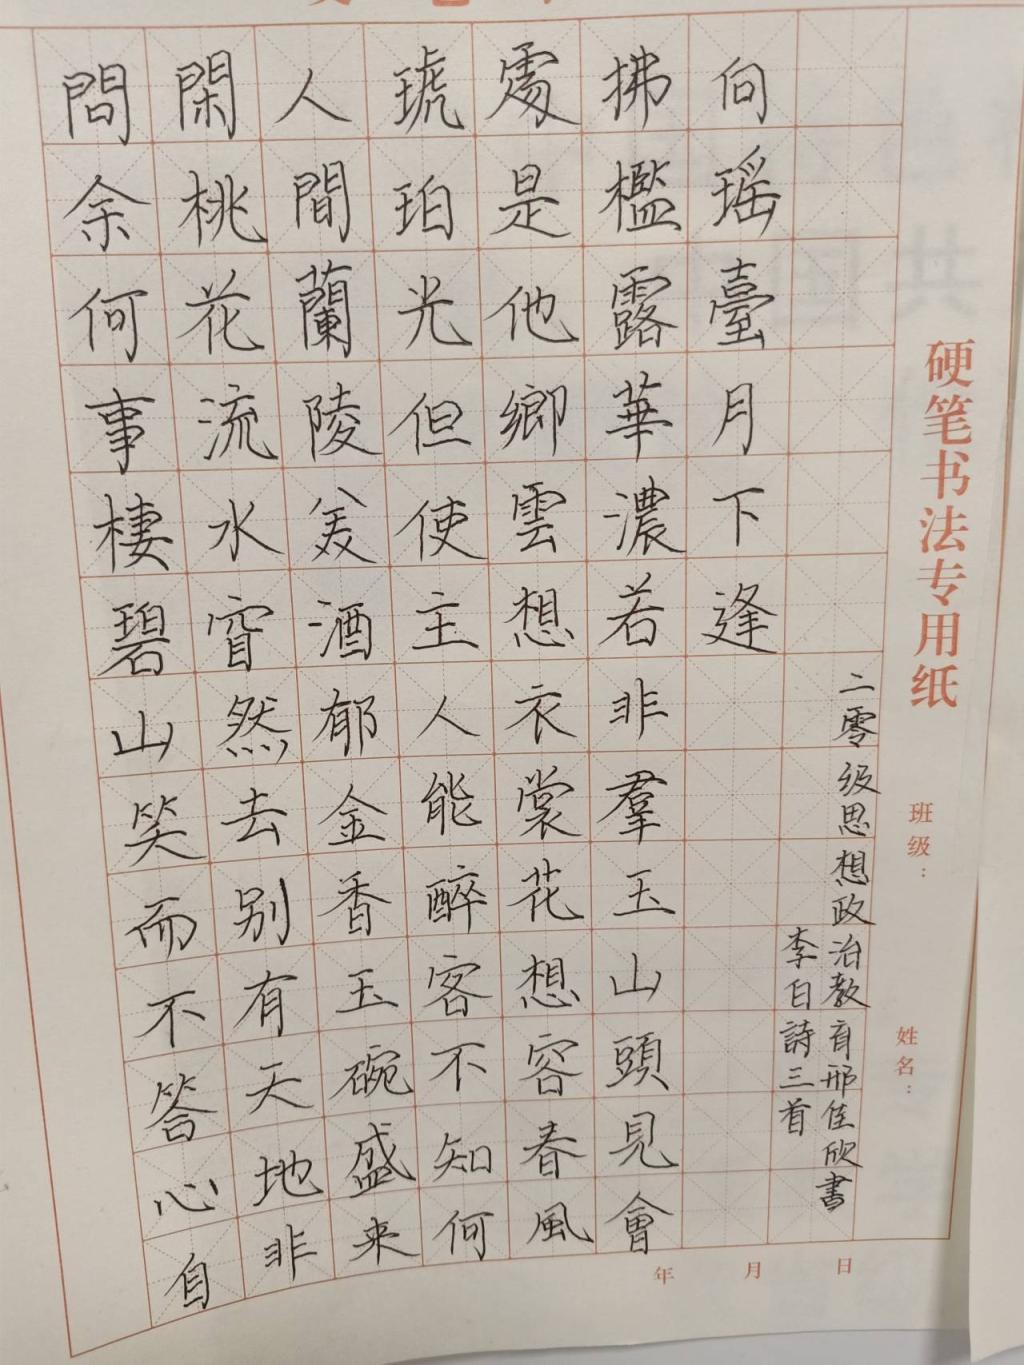 問余何事棲碧山笑而不答心自
閑桃花流水窅然去别有天地非
人間蘭陵美酒郁金香玉碗盛来
琥珀光但使主人能醉客不知何
處是他鄉雲想衣裳花想容春風
拂檻露華濃若非羣玉山頭見會
向瑶臺月下逢
李白詩三首
二零级思想政治教育邢佳欣書
硬笔书法专用纸
班级：
姓名：
年 月 日